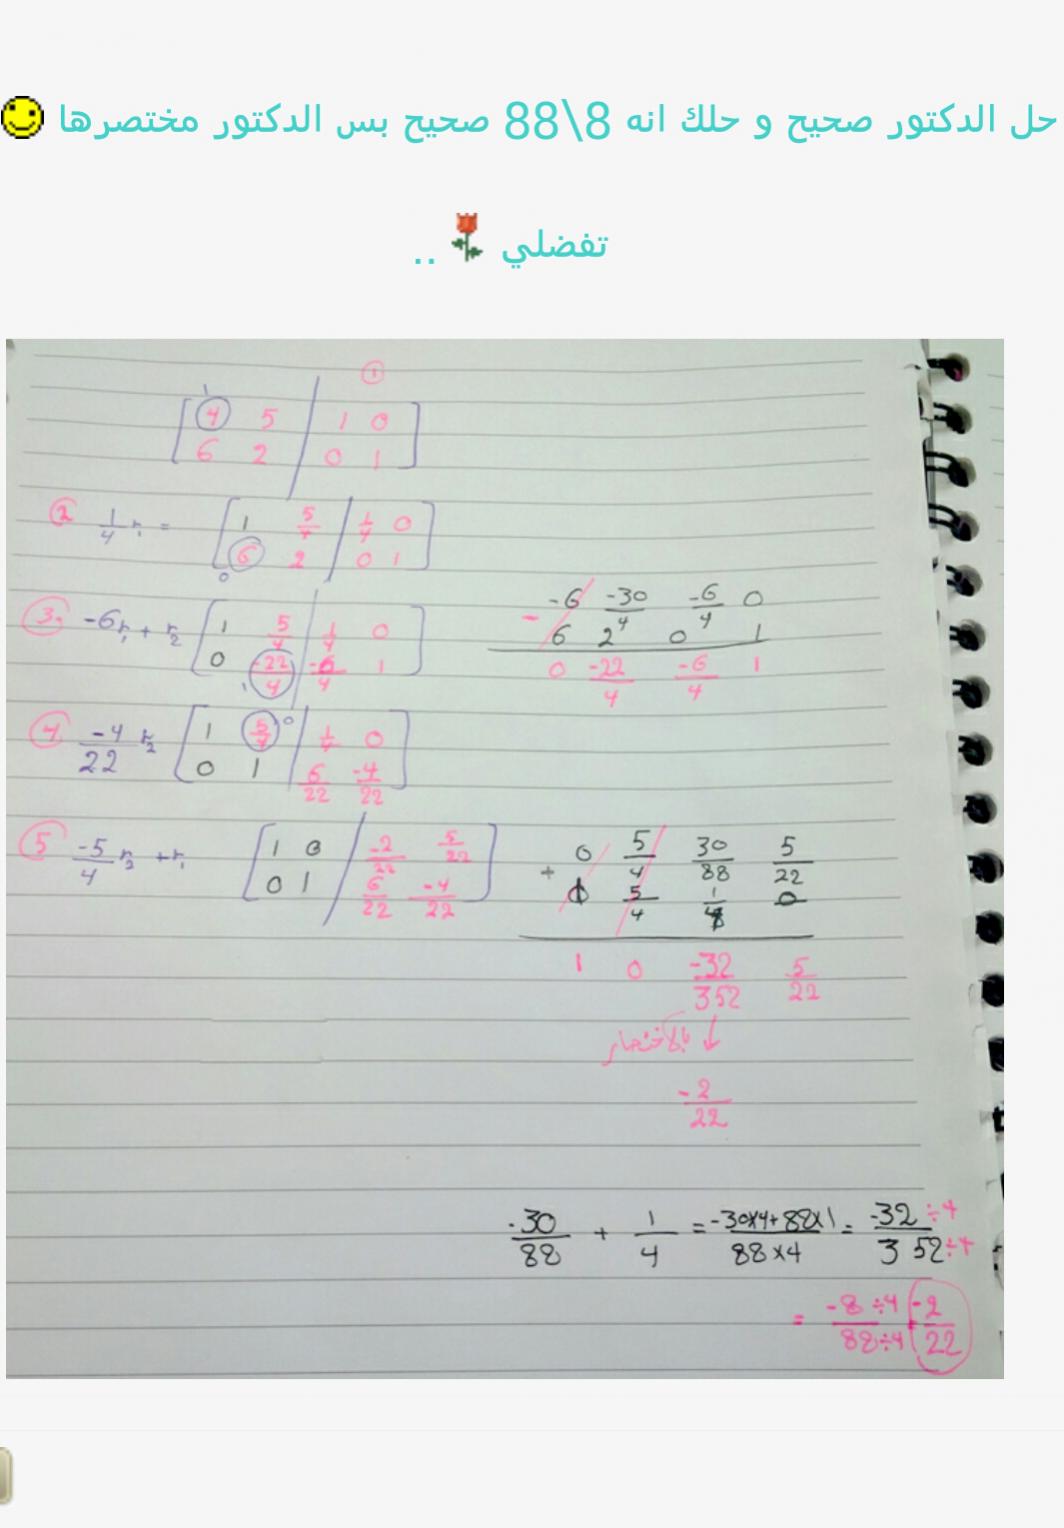 حل الدكتور صحيح و حلك انه 8\88 صحيح بس الدكتور مختصرها
تفضلي ..
①
1
4 5 | 1 0
6 2 | 0 1
② 1/4 r₁ = 1 5/4 | 1/4 0
6 2 | 0 1
0
③ -6r₁ + r₂ 1 5/4 | 1/4 0
0 -22/4 | -6/4 1
-6 -30/4 -6/4 0
6 2 0 1
0 -22/4 -6/4 1
④ -4/22 r₂ 1 5/4 | 1/4 0
0 1 | 6/22 -4/22
⑤ -5/4 r₂ + r₁ 1 0 | -2/22 5/22
0 1 | 6/22 -4/22
+ 0 5/4 30/88 5/22
1 5/4 1/4 0
1 0 -32/352 5/22
بالاختصار ↓
-2/22
-30/88 + 1/4 = -30x4+88x1/88x4 = -32÷4/352÷4
= -8÷4/88÷4 = -2/22